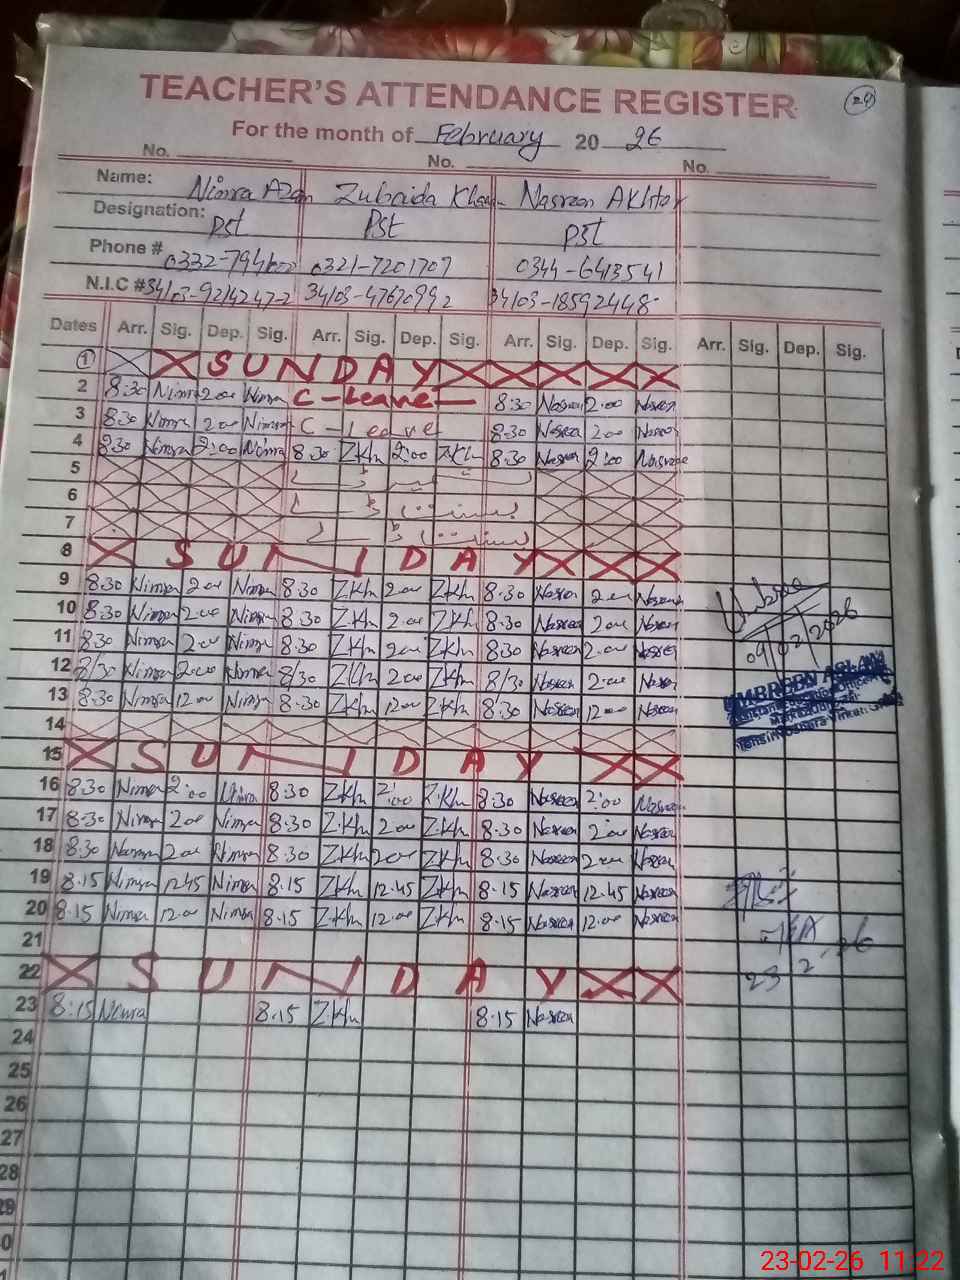 TEACHER'S ATTENDANCE REGISTER
24
For the month of February 20 26
No. No. No.
Name: Nimra Azam Zubaida Khan Nasreen Akhtar
Designation: PST PST PST
Phone # 0321-7201707 0344-6413541
N.I.C # 34103-9214247-2 34103-47670992 34103-18592448-
Dates Arr. Sig. Dep. Sig. Arr. Sig. Dep. Sig. Arr. Sig. Dep. Sig. Arr. Sig. Dep. Sig.
1 SUNDAY
2 8:30 Nimra 2:00 Nimra C-Leave 8:30 Nasreen 2:00 Nasreen
3 8:30 Nimra 2:00 Nimra C-Leave 8:30 Nasreen 2:00 Nasreen
4 8:30 Nimra 2:00 Nimra 8:30 Z.Kh 2:00 Z.Kh 8:30 Nasreen 2:00 Nasreen
5
6
7
8 SUNDAY
9 8:30 Nimra 2:00 Nimra 8:30 Z.Kh 2:00 Z.Kh 8:30 Nasreen 2:00 Nasreen
10 8:30 Nimra 2:00 Nimra 8:30 Z.Kh 2:00 Z.Kh 8:30 Nasreen 2:00 Nasreen
11 8:30 Nimra 2:00 Nimra 8:30 Z.Kh 2:00 Z.Kh 8:30 Nasreen 2:00 Nasreen
12 8/30 Nimra 2:00 Nimra 8/30 Z.Kh 2:00 Z.Kh 8/30 Nasreen 2:00 Nasreen
13 8:30 Nimra 12:00 Nimra 8:30 Z.Kh 12:00 Z.Kh 8:30 Nasreen 12:00 Nasreen
09/02/2026
14
15 SUNDAY
16 8:30 Nimra 2:00 Nimra 8:30 Z.Kh 2:00 Z.Kh 8:30 Nasreen 2:00 Nasreen
17 8:30 Nimra 2:00 Nimra 8:30 Z.Kh 2:00 Z.Kh 8:30 Nasreen 2:00 Nasreen
18 8:30 Nimra 2:00 Nimra 8:30 Z.Kh 2:00 Z.Kh 8:30 Nasreen 2:00 Nasreen
19 8:15 Nimra 12:45 Nimra 8:15 Z.Kh 12:45 Z.Kh 8:15 Nasreen 12:45 Nasreen
20 8:15 Nimra 12:00 Nimra 8:15 Z.Kh 12:00 Z.Kh 8:15 Nasreen 12:00 Nasreen
21
22 SUNDAY
23-2-26
23 8:15 Nimra 8:15 Z.Kh 8:15 Nasreen
24
25
26
27
28
29
23-02-26 11:22